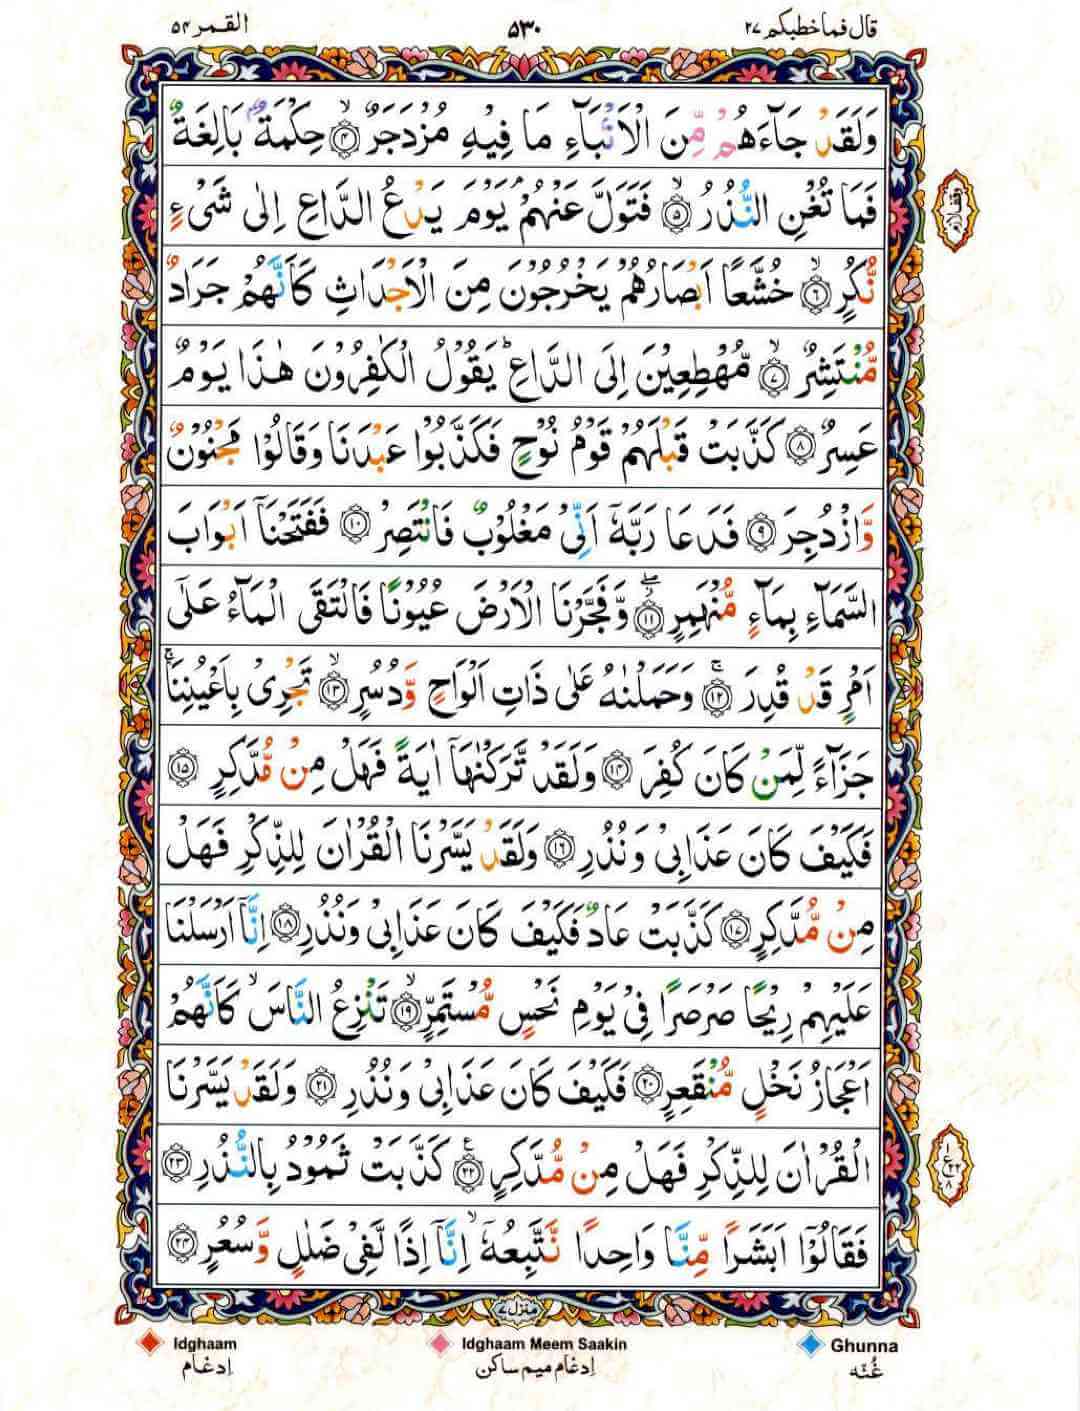 قال فما خطبكم ٢٧ ٥٣٠ القمر ٥٤
وَلَقَدْ جَآءَهُمْ مِّنَ الْاَنْۢبَآءِ مَا فِيْهِ مُزْدَجَرٌ ۙ﴿۴﴾ حِكْمَةٌۢ بَالِغَةٌ
فَمَا تُغْنِ النُّذُرُ ۙ﴿۵﴾ فَتَوَلَّ عَنْهُمْ ۘ يَوْمَ يَدْعُ الدَّاعِ اِلٰى شَىْءٍ
وقف لازم
نُّكُرٍ ۙ﴿۶﴾ خُشَّعًا اَبْصَارُهُمْ يَخْرُجُوْنَ مِنَ الْاَجْدَاثِ كَاَنَّهُمْ جَرَادٌ
مُّنْتَشِرٌ ۙ﴿۷﴾ مُّهْطِعِيْنَ اِلَى الدَّاعِ ؕ يَقُوْلُ الْكٰفِرُوْنَ هٰذَا يَوْمٌ
عَسِرٌ ﴿۸﴾ كَذَّبَتْ قَبْلَهُمْ قَوْمُ نُوْحٍ فَكَذَّبُوْا عَبْدَنَا وَقَالُوْا مَجْنُوْنٌ
وَّازْدُجِرَ ﴿۹﴾ فَدَعَا رَبَّهٗۤ اَنِّىْ مَغْلُوْبٌ فَانْتَصِرْ ﴿۱۰﴾ فَفَتَحْنَاۤ اَبْوَابَ
السَّمَآءِ بِمَآءٍ مُّنْهَمِرٍ ۖ﴿۱۱﴾ وَّفَجَّرْنَا الْاَرْضَ عُيُوْنًا فَالْتَقَى الْمَآءُ عَلٰٓى
اَمْرٍ قَدْ قُدِرَ ۚ﴿۱۲﴾ وَحَمَلْنٰهُ عَلٰى ذَاتِ اَلْوَاحٍ وَّدُسُرٍ ۙ﴿۱۳﴾ تَجْرِىْ بِاَعْيُنِنَا ۚ
جَزَآءً لِّمَنْ كَانَ كُفِرَ ﴿۱۴﴾ وَلَقَدْ تَّرَكْنٰهَاۤ اٰيَةً فَهَلْ مِنْ مُّدَّكِرٍ ﴿۱۵﴾
فَكَيْفَ كَانَ عَذَابِىْ وَنُذُرِ ﴿۱۶﴾ وَلَقَدْ يَسَّرْنَا الْقُرْاٰنَ لِلذِّكْرِ فَهَلْ
مِنْ مُّدَّكِرٍ ﴿۱۷﴾ كَذَّبَتْ عَادٌ فَكَيْفَ كَانَ عَذَابِىْ وَنُذُرِ ﴿۱۸﴾ اِنَّاۤ اَرْسَلْنَا
عَلَيْهِمْ رِيْحًا صَرْصَرًا فِىْ يَوْمِ نَحْسٍ مُّسْتَمِرٍّ ۙ﴿۱۹﴾ تَنْزِعُ النَّاسَ ۙ كَاَنَّهُمْ
اَعْجَازُ نَخْلٍ مُّنْقَعِرٍ ﴿۲۰﴾ فَكَيْفَ كَانَ عَذَابِىْ وَنُذُرِ ﴿۲۱﴾ وَلَقَدْ يَسَّرْنَا
الْقُرْاٰنَ لِلذِّكْرِ فَهَلْ مِنْ مُّدَّكِرٍ ﴿۲۲﴾ ع كَذَّبَتْ ثَمُوْدُ بِالنُّذُرِ ﴿۲۳﴾
١ ع ٢٢ ٨
فَقَالُوْۤا اَبَشَرًا مِّنَّا وَاحِدًا نَّتَّبِعُهٗۤ ۙ اِنَّاۤ اِذًا لَّفِىْ ضَلٰلٍ وَّسُعُرٍ ﴿۲۴﴾
منزل ٧
Idghaam Idghaam Meem Saakin Ghunna
اِدغام اِدغام میم ساکن غُنّه